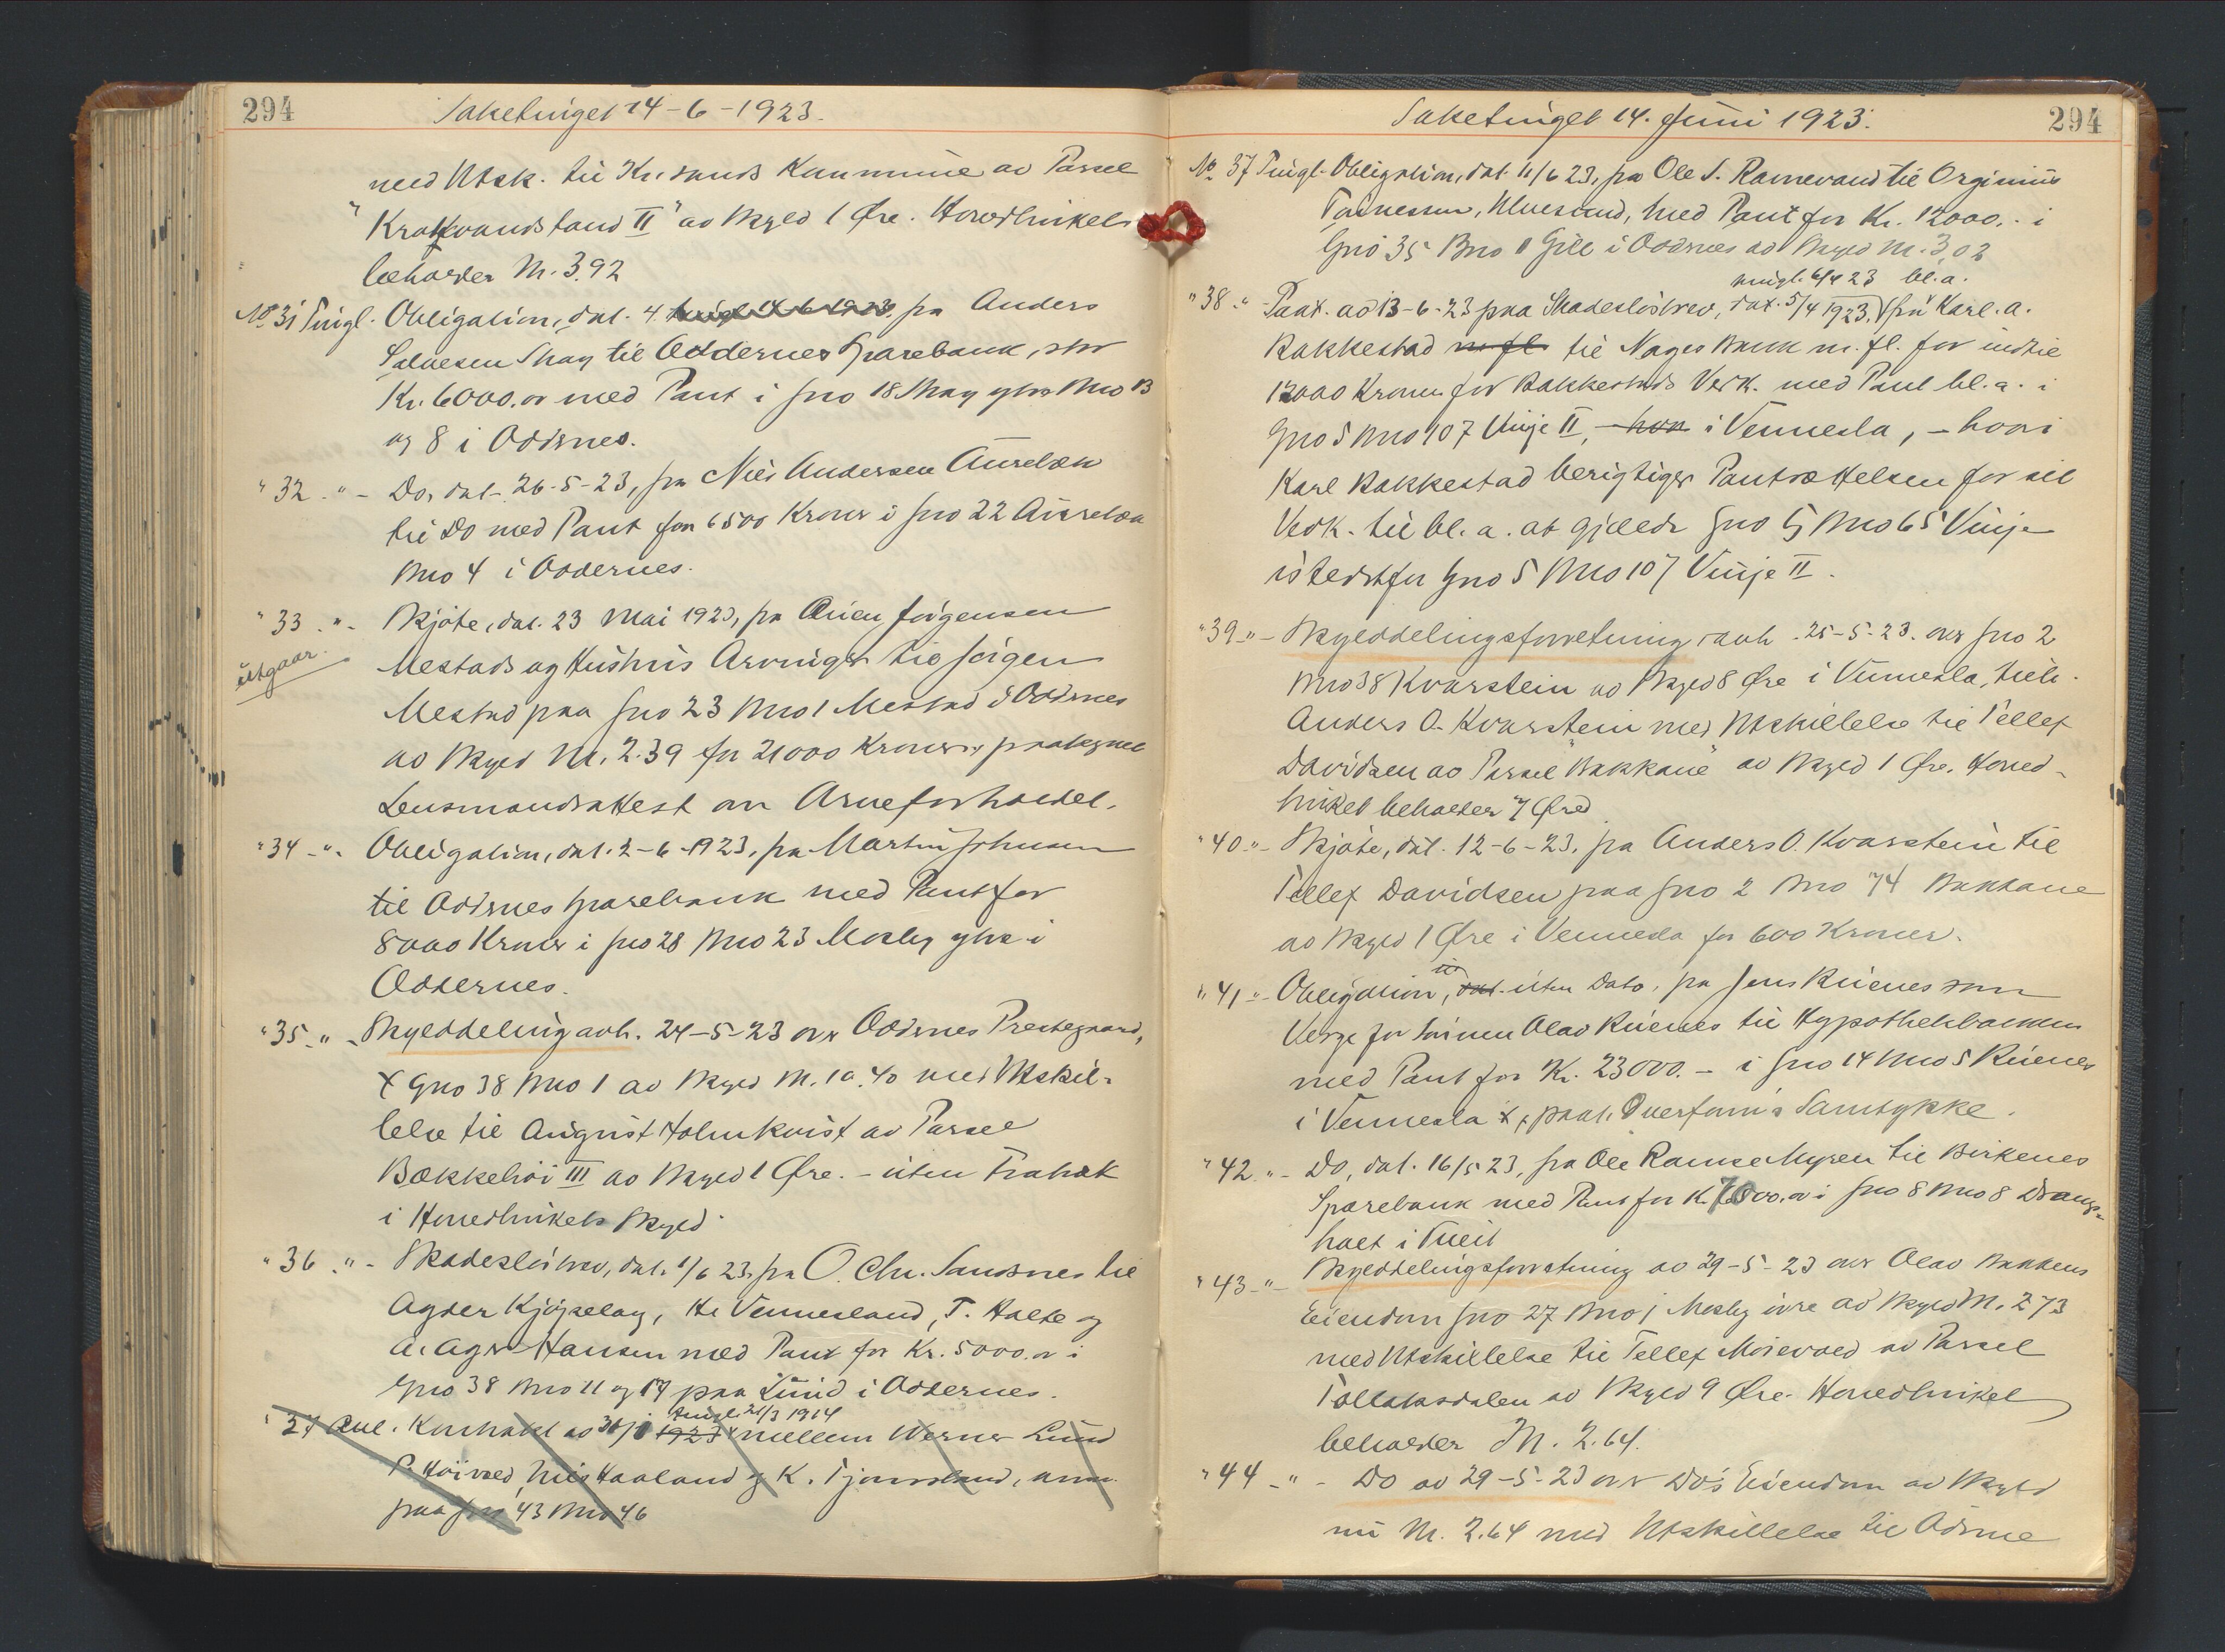 294
Saketinget 14-6-1923.
med Utsk. til Kr.sands Kommune av Parsel
"Krakvandsland II" av Skyld 1 Øre. Hovedbrukets
beholder M. 3.92
No 31 Tingl. Obligation, dat. 4. tingl. 14-6-1923, fra Anders
Salvesen Stray til Oddernes Sparebank, stor
Kr. 6000.00 med Pant i Gno 18 Stray ytre Bno 13
og 8 i Oddernes.
" 32 " - Do, dat. 26-5-23, fra Nils Andersen Aurebæk
til Do med Pant for 6500 Kroner i Gno 22 Aurebæk
Bno 4 i Oddernes.
" 33 " - Skjøte, dat. 23 Mai 1923, fra Jørgensen
utgaar.
Mestads og Hustrus Arvinger til Jørgen
Mestad paa Gno 23 Bno 1 Mestad i Oddernes
av Skyld M. 2.39 for 21000 Kroner, paategnet
Lensmandsattest om Arveforholdet.
" 34 " - Obligation, dat. 2-6-1923, fra Martin Johnsen
til Oddernes Sparebank med Pant for
8000 Kroner i Gno 28 Bno 23 Mosby ytre i
Oddernes.
" 35 " - Skylddeling avh. 24-5-23 over Oddernes Prestegaard,
Gno 38 Bno 1 av Skyld M. 10.40 med Utskil-
lelse til August Holmkvist av Parsel
Bækkehøi III av Skyld 1 Øre. - uten Fratræk
i Hovedbrukets Skyld.
" 36 " - Skadesløsbrev, dat. 1/6 23, fra O. Chr. Sandsnes til
Agder Kjøpelag, H. Vennesland, T. Halte og
A. Ager-Hansen med Pant for Kr. 5000.00 i
Gno 38 Bno 11 og 17 paa Lund i Oddernes.
tingl. 21/3 1914
" 37 Aul. Kontrakt av 1923 mellem Werner Lund
P. Høivold, Nils Haaland og K. Tjomsland, anm.
paa Gno 43 Bno 46
Saketinget 14. Juni 1923.
294
No 37 Tingl. Obligation, dat. 11/6 23, fra Ole S. Ramevand til Orginius
Tønnessen, Uluesund, med Pant for Kr. 12000.- i
Gno 35 Bno 11 Gill i Oddernes av Skyld M. 3,02
tingl. 6/4 23 bl.a.
" 38 " - Paat. av 13-6-23 paa Skadesløsbrev, dat. 5/4 1923, fra Karl. A.
Rakkestad m.fl. til Norges Bank m.fl. for indtil
12000 Kroner for Rakkestads Vedk. med Pant bl.a. i
Gno 5 Bno 107 Vinje II, - hvor i Vennesla, - hvori
Karl Rakkestad berigtiger Pantsættelsen for sit
Vedk. til bl.a. at gjælde Gno 5 Bno 65 Vinje
istedetfor Gno 5 Bno 107 Vinje II.
" 39 " - Skylddelingsforretning avh. 25-5-23. over Gno 2
Bno 38 Kvarstein av Skyld 8 Øre i Vennesla, tilh.
Anders O. Kvarstein med Utskillelse til Tellef
Davidsen av Parsel "Bakkane" av Skyld 1 Øre. Hoved-
bruket beholder 7 Øre
" 40 " - Skjøte, dat. 12-6-23, fra Anders O. Kvarstein til
Tellef Davidsen paa Gno 2 Bno 74 Bakkane
av Skyld 1 Øre i Vennesla for 600 Kroner.
" 41 " - Obligation, dat. uten Dato, fra Jens Rüenes som
Verge for Olav Rüenes til Hypothekbanken
med Pant for Kr. 23000.- i Gno 14 Bno 5 Rüenes
i Vennesla, paat. Overform's Samtykke.
" 42 " - Do, dat. 16/5 23, fra Ole Ramse Myren til Birkenes
Sparebank med Pant for Kr. 7500.00 i Gno 8 Bno 8 Drangs-
holt i Tveit
" 43 " - Skylddelingsforretning av 29-5-23 over Olav Bakkens
Eiendom Gno 27 Bno 1 Mosby øvre av Skyld M. 2.73
med Utskillelse til Tellef Moseid av Parsel
Tollaksdalen av Skyld 9 Øre. Hovedbruket
beholder M. 2.64.
" 44 " - Do av 29-5-23 over Do's Eiendom av Skyld
nu M. 2.64 med Utskillelse til Odine